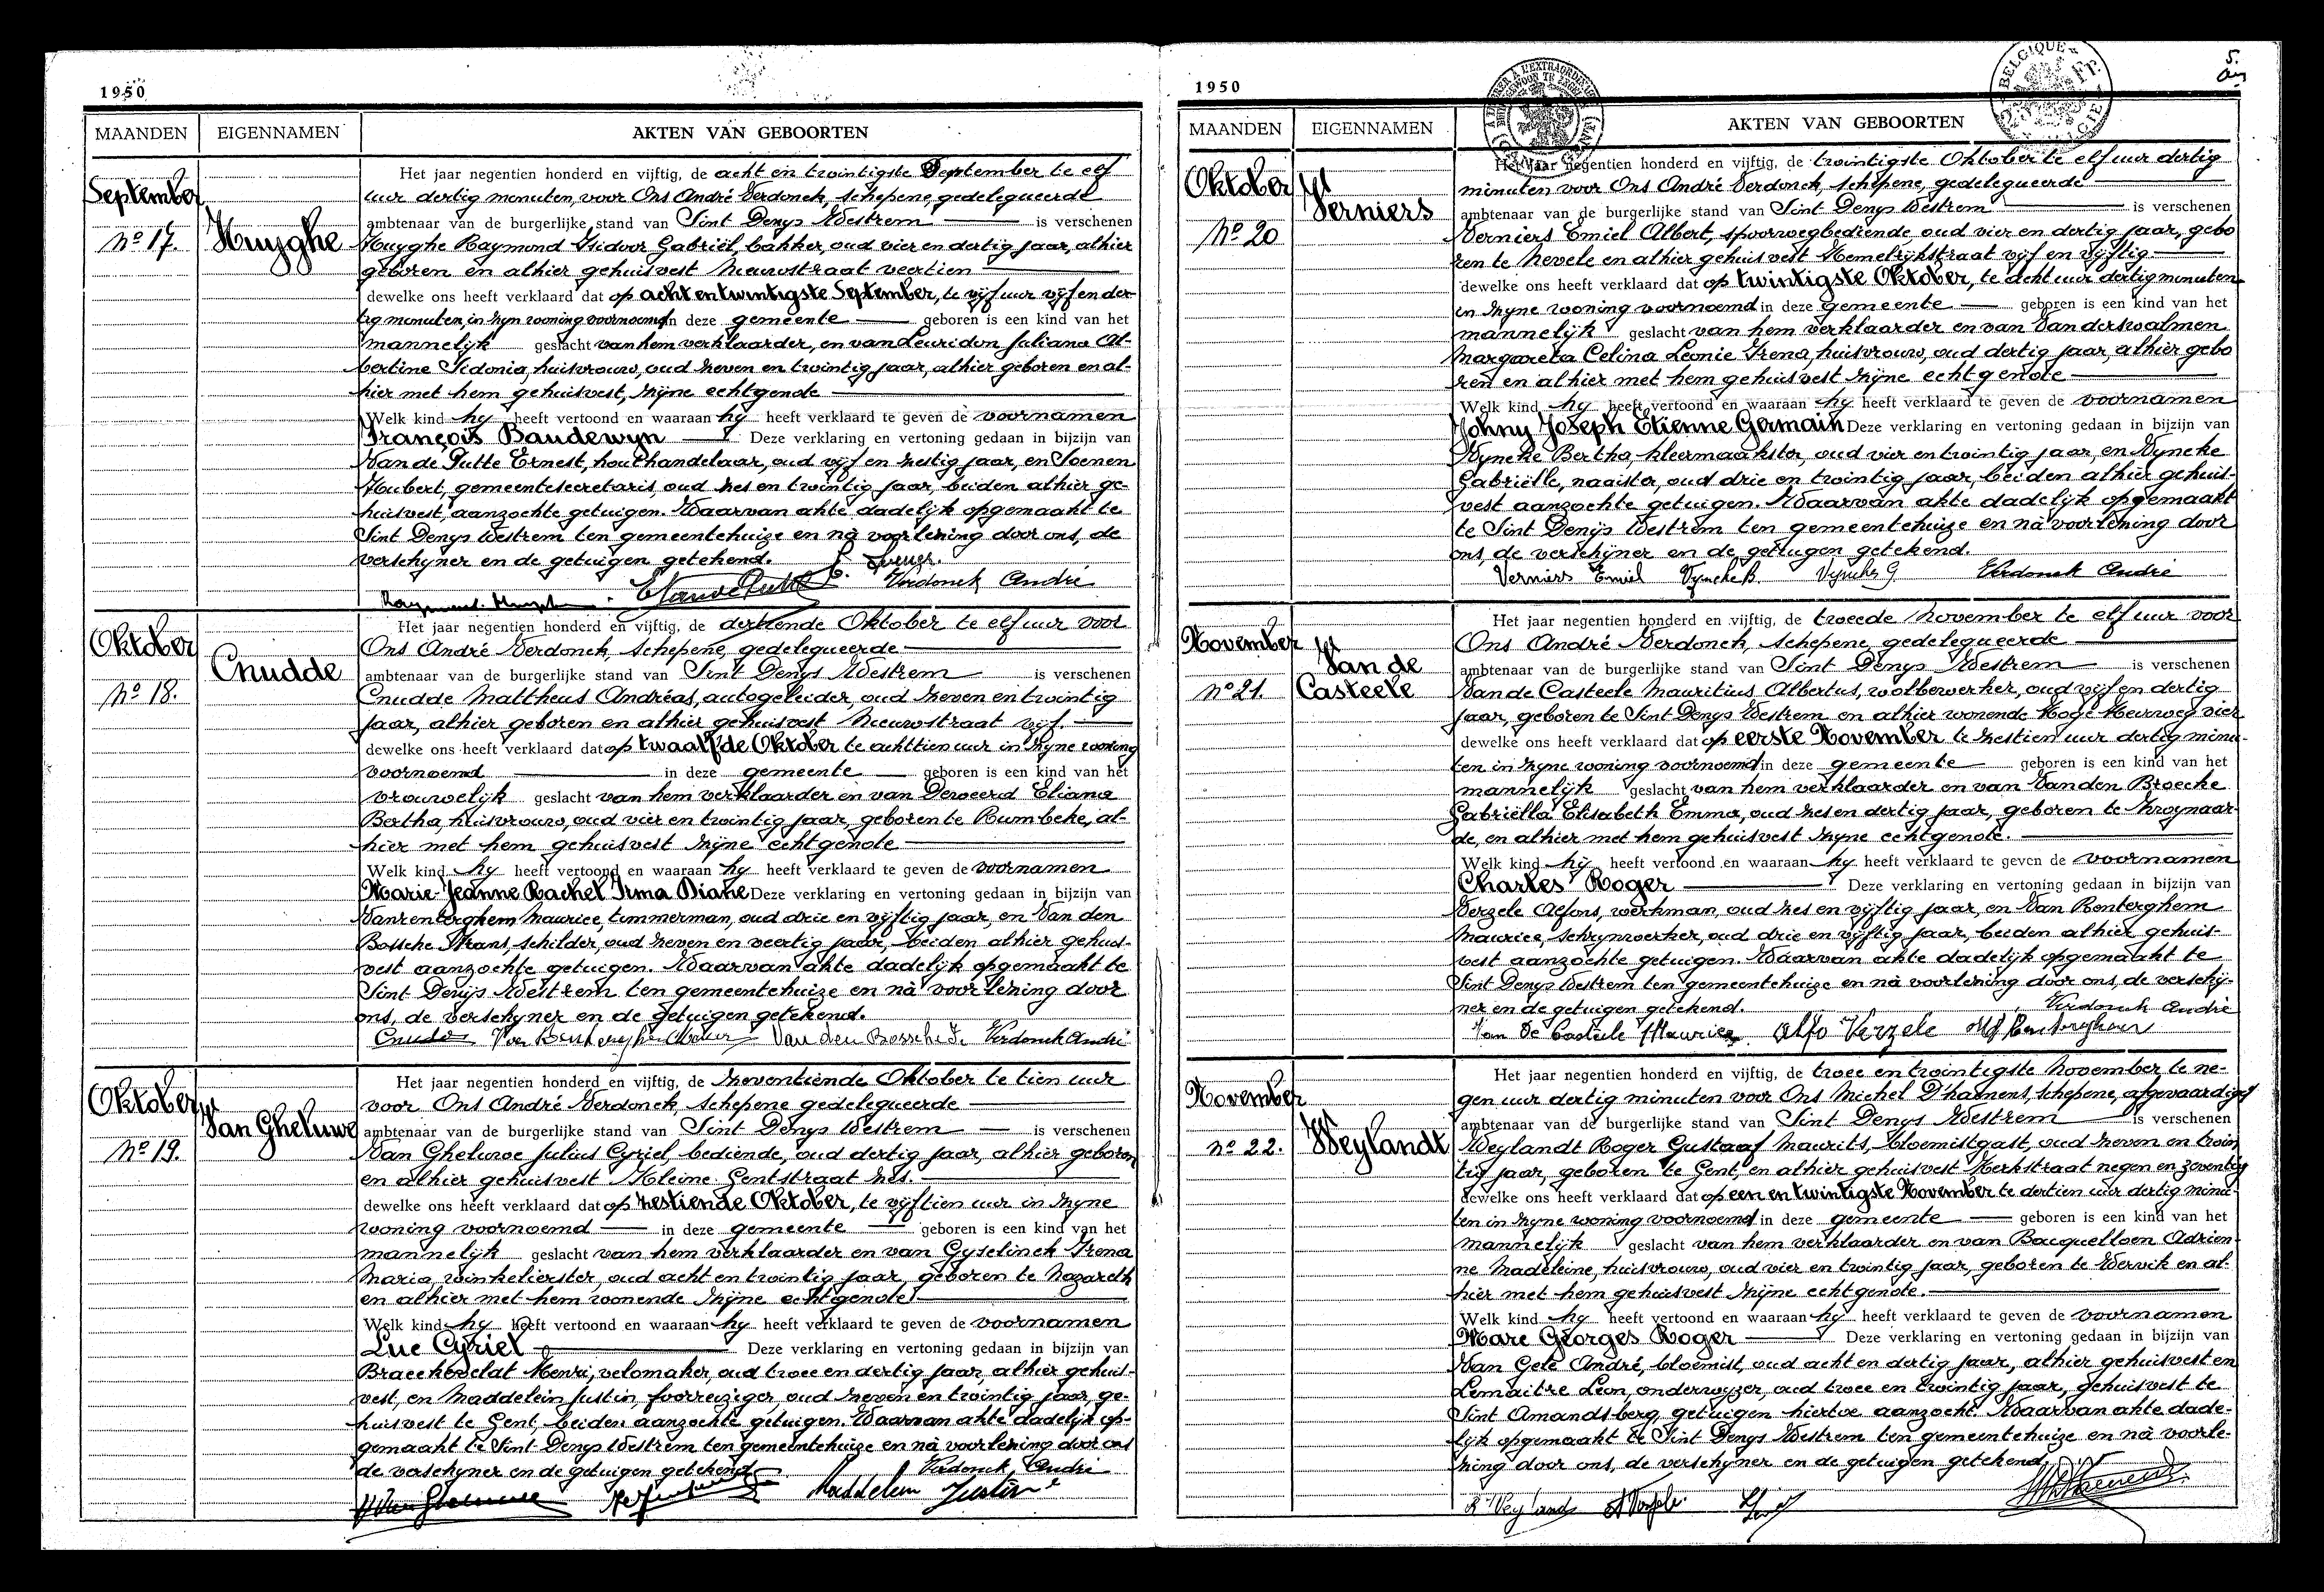 1950
MAANDEN EIGENNAMEN AKTEN VAN GEBOORTEN
September
No 17. Huyghe
Het jaar negentien honderd en vijftig, de acht en twintigste September te elf
uur dertig minuten, voor Ons André Verdonck, schepene, gedelegueerde
ambtenaar van de burgerlijke stand van Sint Denys Westrem is verschenen
Huyghe Raymond Isidoor Gabriël, bakker, oud vier en dertig jaar, alhier
geboren en alhier gehuisvest Nieuwstraat veertien
dewelke ons heeft verklaard dat op acht en twintigste September, te vijf uur vijf en der-
tig minuten, in zyn woning voornoemd in deze gemeente geboren is een kind van het
mannelijk geslacht van hem verklaarder, en van Leuridon Juliana Al-
bertine Sidonia, huisvrouw, oud zeven en twintig jaar, alhier geboren en al-
hier met hem gehuisvest, zijne echtgenote
Welk kind hy heeft vertoond en waaraan hy heeft verklaard te geven de voornamen
François Baudewyn Deze verklaring en vertoning gedaan in bijzijn van
Van de Putte Ernest, houthandelaar, oud vijf en zestig jaar, en Soenen
Hubert, gemeentesecretaris, oud zes en twintig jaar, beiden alhier ge-
huisvest, aanzochte getuigen. Waarvan akte dadelijk opgemaakt te
Sint Denys Westrem ten gemeentehuize en nà voorlezing door ons, de
verschyner en de getuigen getekend.
Verdonck André
Oktober
No 18. Cnudde
Het jaar negentien honderd en vijftig, de dertiende Oktober te elf uur voor
Ons André Verdonck, schepene, gedelegueerde
ambtenaar van de burgerlijke stand van Sint Denys Westrem is verschenen
Cnudde Mattheus Andréas, autogeleider, oud zeven en twintig
jaar, alhier geboren en alhier gehuisvest Nieuwstraat vijf.
dewelke ons heeft verklaard dat op twaalfde Oktober te achttien uur in zyne woning
voornoemd in deze gemeente geboren is een kind van het
vrouwelijk geslacht van hem verklaarder en van Deweerd Eliana
Bertha, huisvrouw, oud vier en twintig jaar, geboren te Rumbeke, al-
hier met hem gehuisvest zijne echtgenote
Welk kind hy heeft vertoond en waaraan hy heeft verklaard te geven de voornamen
Marie-Jeanne Rachel Irma Diane Deze verklaring en vertoning gedaan in bijzijn van
Vanrenterghem Maurice, timmerman, oud drie en vijftig jaar, en Van den
Bossche Frans, schilder, oud zeven en veertig jaar, beiden alhier gehuis-
vest aanzochte getuigen. Waarvan akte dadelijk opgemaakt te
Sint Denijs Westrem ten gemeentehuize en nà voorlezing door
ons, de verschyner en de getuigen getekend.
Cnudde Van den Bossche Verdonck André
Oktober
No 19. Van Gheluwe
Het jaar negentien honderd en vijftig, de zeventiende Oktober te tien uur
voor Ons André Verdonck, schepene gedelegueerde
ambtenaar van de burgerlijke stand van Sint Denys Westrem is verschenen
Van Gheluwe Julius Cyriel bediende, oud dertig jaar, alhier geboren
en alhier gehuisvest Kleine Gentstraat zes.
dewelke ons heeft verklaard dat op zestiende Oktober, te vijftien uur in zyne
woning voornoemd in deze gemeente geboren is een kind van het
mannelijk geslacht van hem verklaarder en van Gyselinck Irena
Maria, winkelierster, oud acht en twintig jaar, geboren te Nazareth
en alhier met hem wonende zijne echtgenote
Welk kind hy heeft vertoond en waaraan hy heeft verklaard te geven de voornamen
Luc Cyriel Deze verklaring en vertoning gedaan in bijzijn van
Braeckevelat Henri, velomaker, oud twee en dertig jaar, alhier gehuis-
vest, en Maddelein Justin, foorreiziger, oud zeven en twintig jaar, ge-
huisvest te Gent, beiden aanzochte getuigen. Waarvan akte dadelijk op-
gemaakt te Sint Denys Westrem ten gemeentehuize en nà voorlezing door ons
de verschyner en de getuigen getekend
Verdonck André
Maddelein Justin
5.
1950
MAANDEN EIGENNAMEN AKTEN VAN GEBOORTEN
Oktober
No 20 Verniers
Het jaar negentien honderd en vijftig, de twintigste Oktober te elf uur dertig
minuten voor Ons André Verdonck, schepene, gedelegueerde
ambtenaar van de burgerlijke stand van Sint Denys Westrem is verschenen
Verniers Emiel Albert, spoorwegbediende, oud vier en dertig jaar, gebo
ren te Nevele en alhier gehuisvest Hemelrijkstraat vijf en vijftig
dewelke ons heeft verklaard dat op twintigste Oktober, te acht uur dertig minuten
in zyne woning voornoemd in deze gemeente geboren is een kind van het
mannelijk geslacht van hem verklaarder en van Vanderswalmen
Margareta Celina Leonie Irena, huisvrouw, oud dertig jaar, alhier gebo
ren en alhier met hem gehuisvest zijne echtgenote
Welk kind hy heeft vertoond en waaraan hy heeft verklaard te geven de voornamen
Johny Joseph Etienne Germain Deze verklaring en vertoning gedaan in bijzijn van
Vyncke Bertha, kleermaakster, oud vier en twintig jaar, en Vyncke
Gabriëlle, naaister, oud drie en twintig jaar, beiden alhier gehuis-
vest aanzochte getuigen. Waarvan akte dadelijk opgemaakt
te Sint Denijs Westrem ten gemeentehuize en nà voorlezing door
ons, de verschijner en de getuigen getekend.
Verniers Emiel Vyncke B. Vyncke G. Verdonck André
November
No 21. Van de Casteele
Het jaar negentien honderd en vijftig, de tweede November te elf uur voor
Ons André Verdonck, schepene, gedelegueerde
ambtenaar van de burgerlijke stand van Sint Denys Westrem is verschenen
Van de Casteele Mauritius Albertus, wolbewerker, oud vijf en dertig
jaar, geboren te Sint Denys Westrem en alhier wonende Hoge Heirweg vier
dewelke ons heeft verklaard dat op eerste November te zestien uur dertig minu-
ten in zyne woning voornoemd in deze gemeente geboren is een kind van het
mannelijk geslacht van hem verklaarder en van Vanden Broecke
Gabriëlla Elisabeth Emma, oud zes en dertig jaar, geboren te Zwynaar-
de, en alhier met hem gehuisvest zyne echtgenote.
Welk kind hij heeft vertoond en waaraan hy heeft verklaard te geven de voornamen
Charles Roger Deze verklaring en vertoning gedaan in bijzijn van
Verzele Alfons, werkman, oud zes en vijftig jaar, en Van Renterghem
Maurice, schrynwerker, oud drie en vijftig jaar, beiden alhier gehuis-
vest aanzochte getuigen. Waarvan akte dadelijk opgemaakt te
Sint Denys Westrem ten gemeentehuize en nà voorlezing door ons, de verschij-
ner en de getuigen getekend. Verdonck André
Van De Casteele Maurice Alfo Verzele
November
No 22. Weylandt
Het jaar negentien honderd en vijftig, de twee en twintigste November te ne-
gen uur dertig minuten voor Ons Michel D'haenens, schepene, afgevaardigd
ambtenaar van de burgerlijke stand van Sint Denys Westrem is verschenen
Weylandt Roger Gustaaf Maurits, bloemistgast, oud zeven en twin
tig jaar, geboren te Gent, en alhier gehuisvest Kerkstraat negen en zeventig
dewelke ons heeft verklaard dat op een en twintigste November te dertien uur dertig minu-
ten in zyne woning voornoemd in deze gemeente geboren is een kind van het
mannelijk geslacht van hem verklaarder en van Bacquelloen Adrien-
ne Madeleine, huisvrouw, oud vier en twintig jaar, geboren te Wervik en al-
hier met hem gehuisvest zijne echtgenote.
Welk kind hij heeft vertoond en waaraan hij heeft verklaard te geven de voornamen
Marc Georges Roger Deze verklaring en vertoning gedaan in bijzijn van
Van Gele André, bloemist, oud acht en dertig jaar, alhier gehuisvest en
Lemaitre Leon, onderwyzer, oud twee en twintig jaar, gehuisvest te
Sint Amandsberg, getuigen hiertoe aanzocht. Waarvan akte dade-
lijk opgemaakt te Sint Denys Westrem ten gemeentehuize en nà voorle-
zing door ons, de verschijner en de getuigen getekend
R. Weylandt